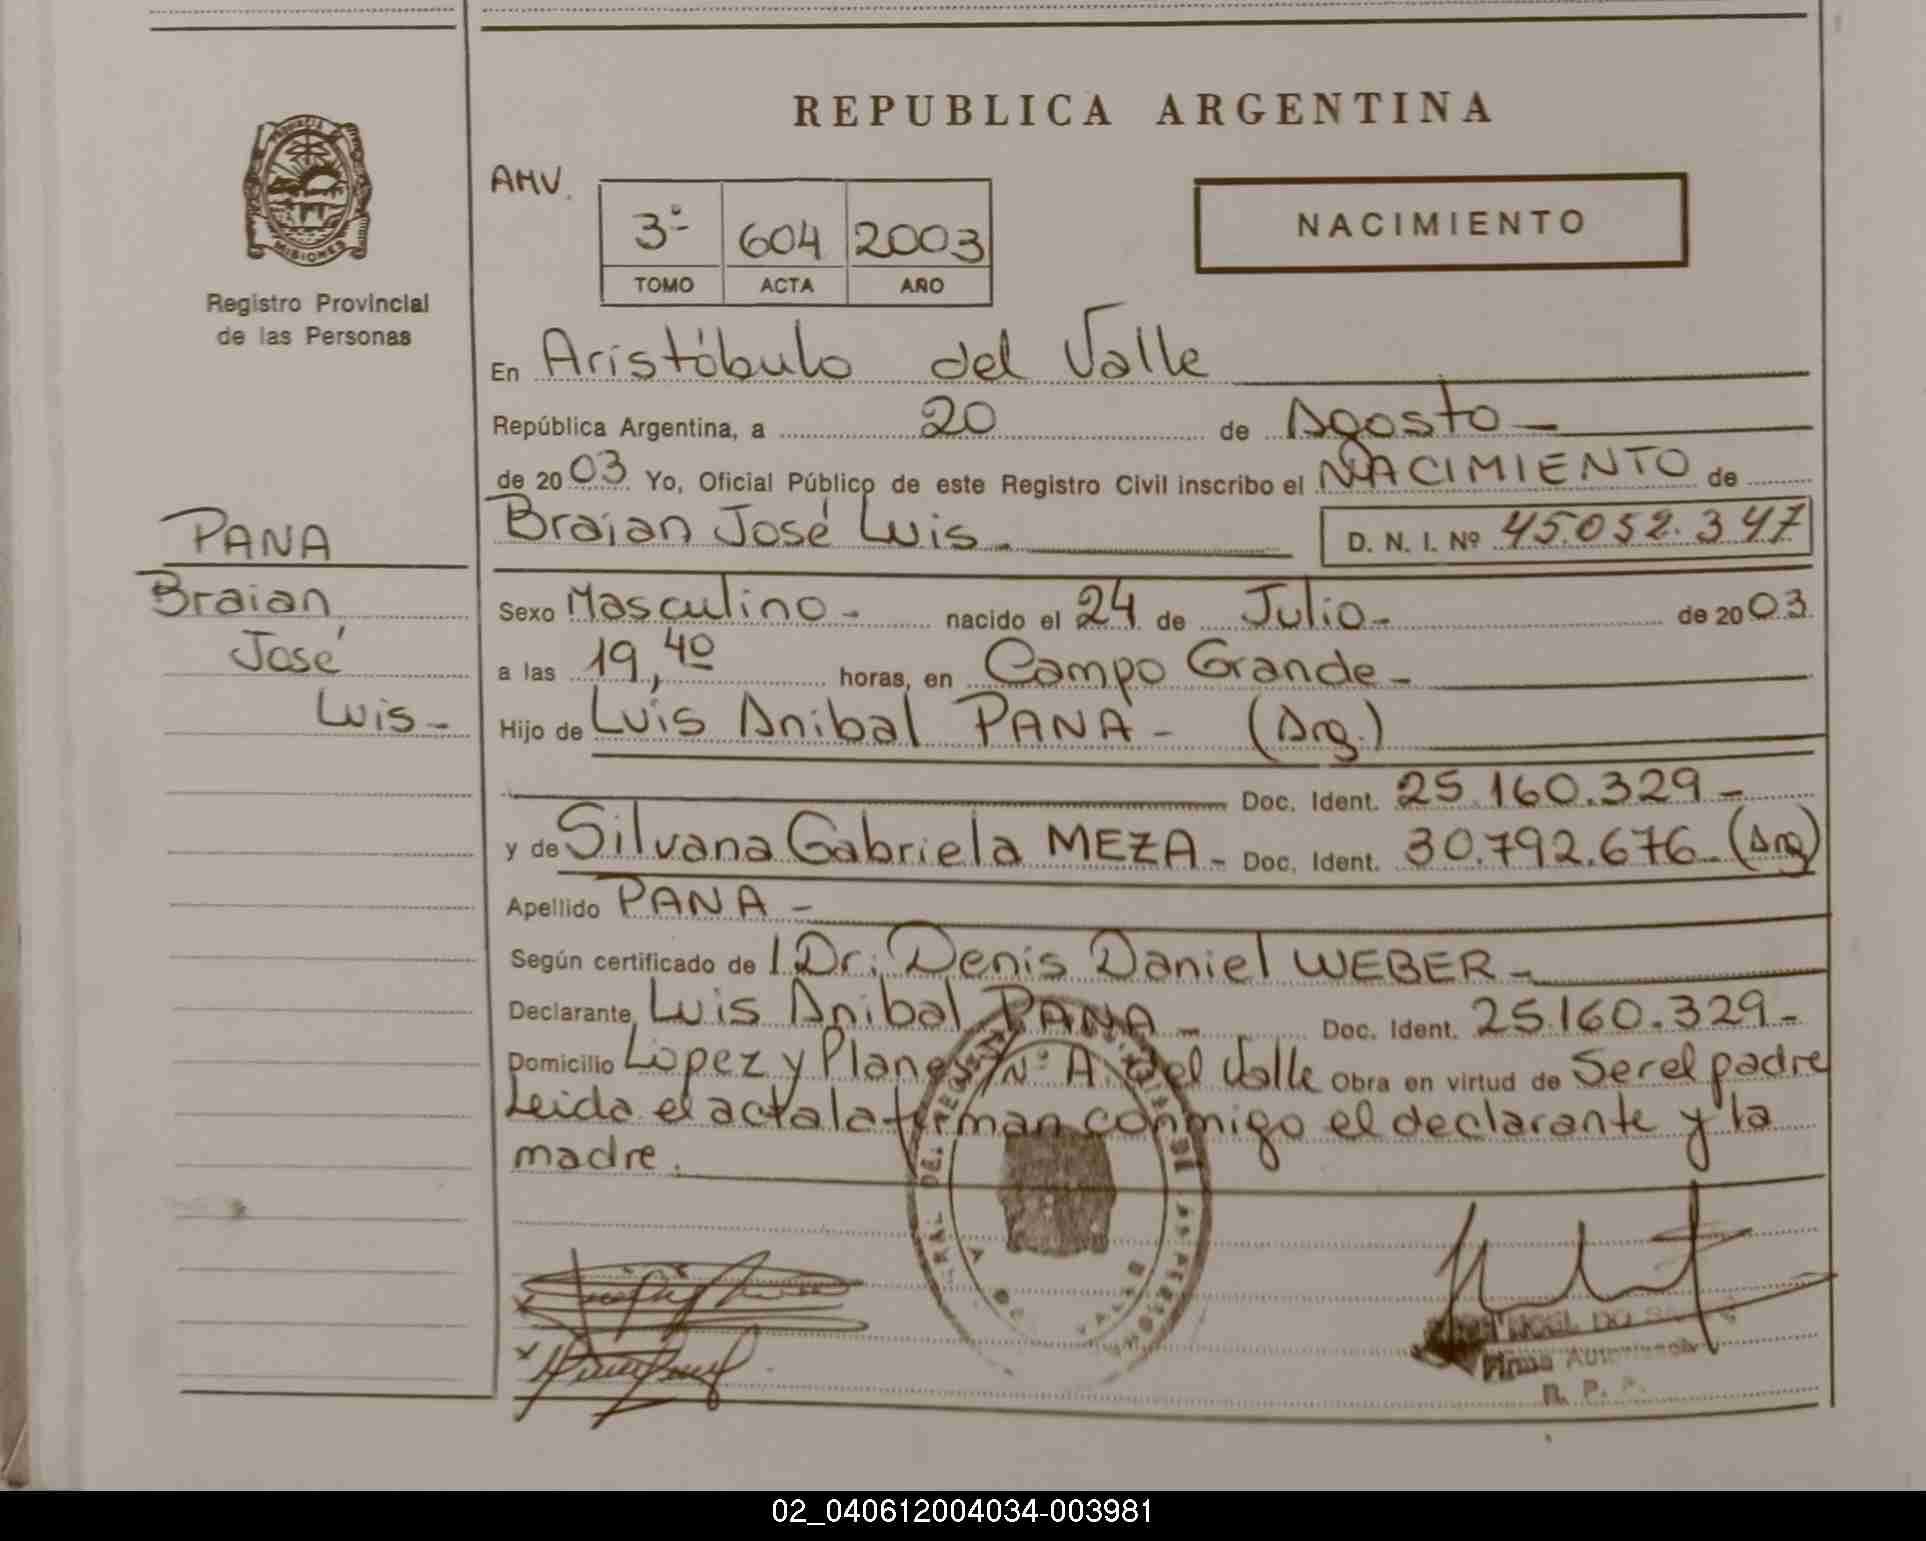 REPUBLICA ARGENTINA
PROVINCIA DE
MISIONES
Registro Provincial
de las Personas
AMV.
3º 604 2003
TOMO ACTA AÑO
NACIMIENTO
En Aristóbulo del Valle
República Argentina, a 20 de Agosto
de 2003 Yo, Oficial Público de este Registro Civil inscribo el NACIMIENTO de
Braian José Luis D. N. I. Nº 45.052.347
PANA
Braian
José
Luis
Sexo Masculino nacido el 24 de Julio de 2003
a las 19,40 horas, en Campo Grande
Hijo de Luis Anibal PANA (Arg.)
Doc. Ident. 25.160.329
y de Silvana Gabriela MEZA Doc. Ident. 30.792.676 (Arg)
Apellido PANA
Según certificado de l Dr. Denis Daniel WEBER
Declarante Luis Anibal PANA Doc. Ident. 25.160.329
Domicilio Lopez y Planes Nº A. del Valle Obra en virtud de Ser el padre
Leida el acta la firman conmigo el declarante y la
madre.
VALLE
Firma Autorizada
R. P. P.
02_040612004034-003981